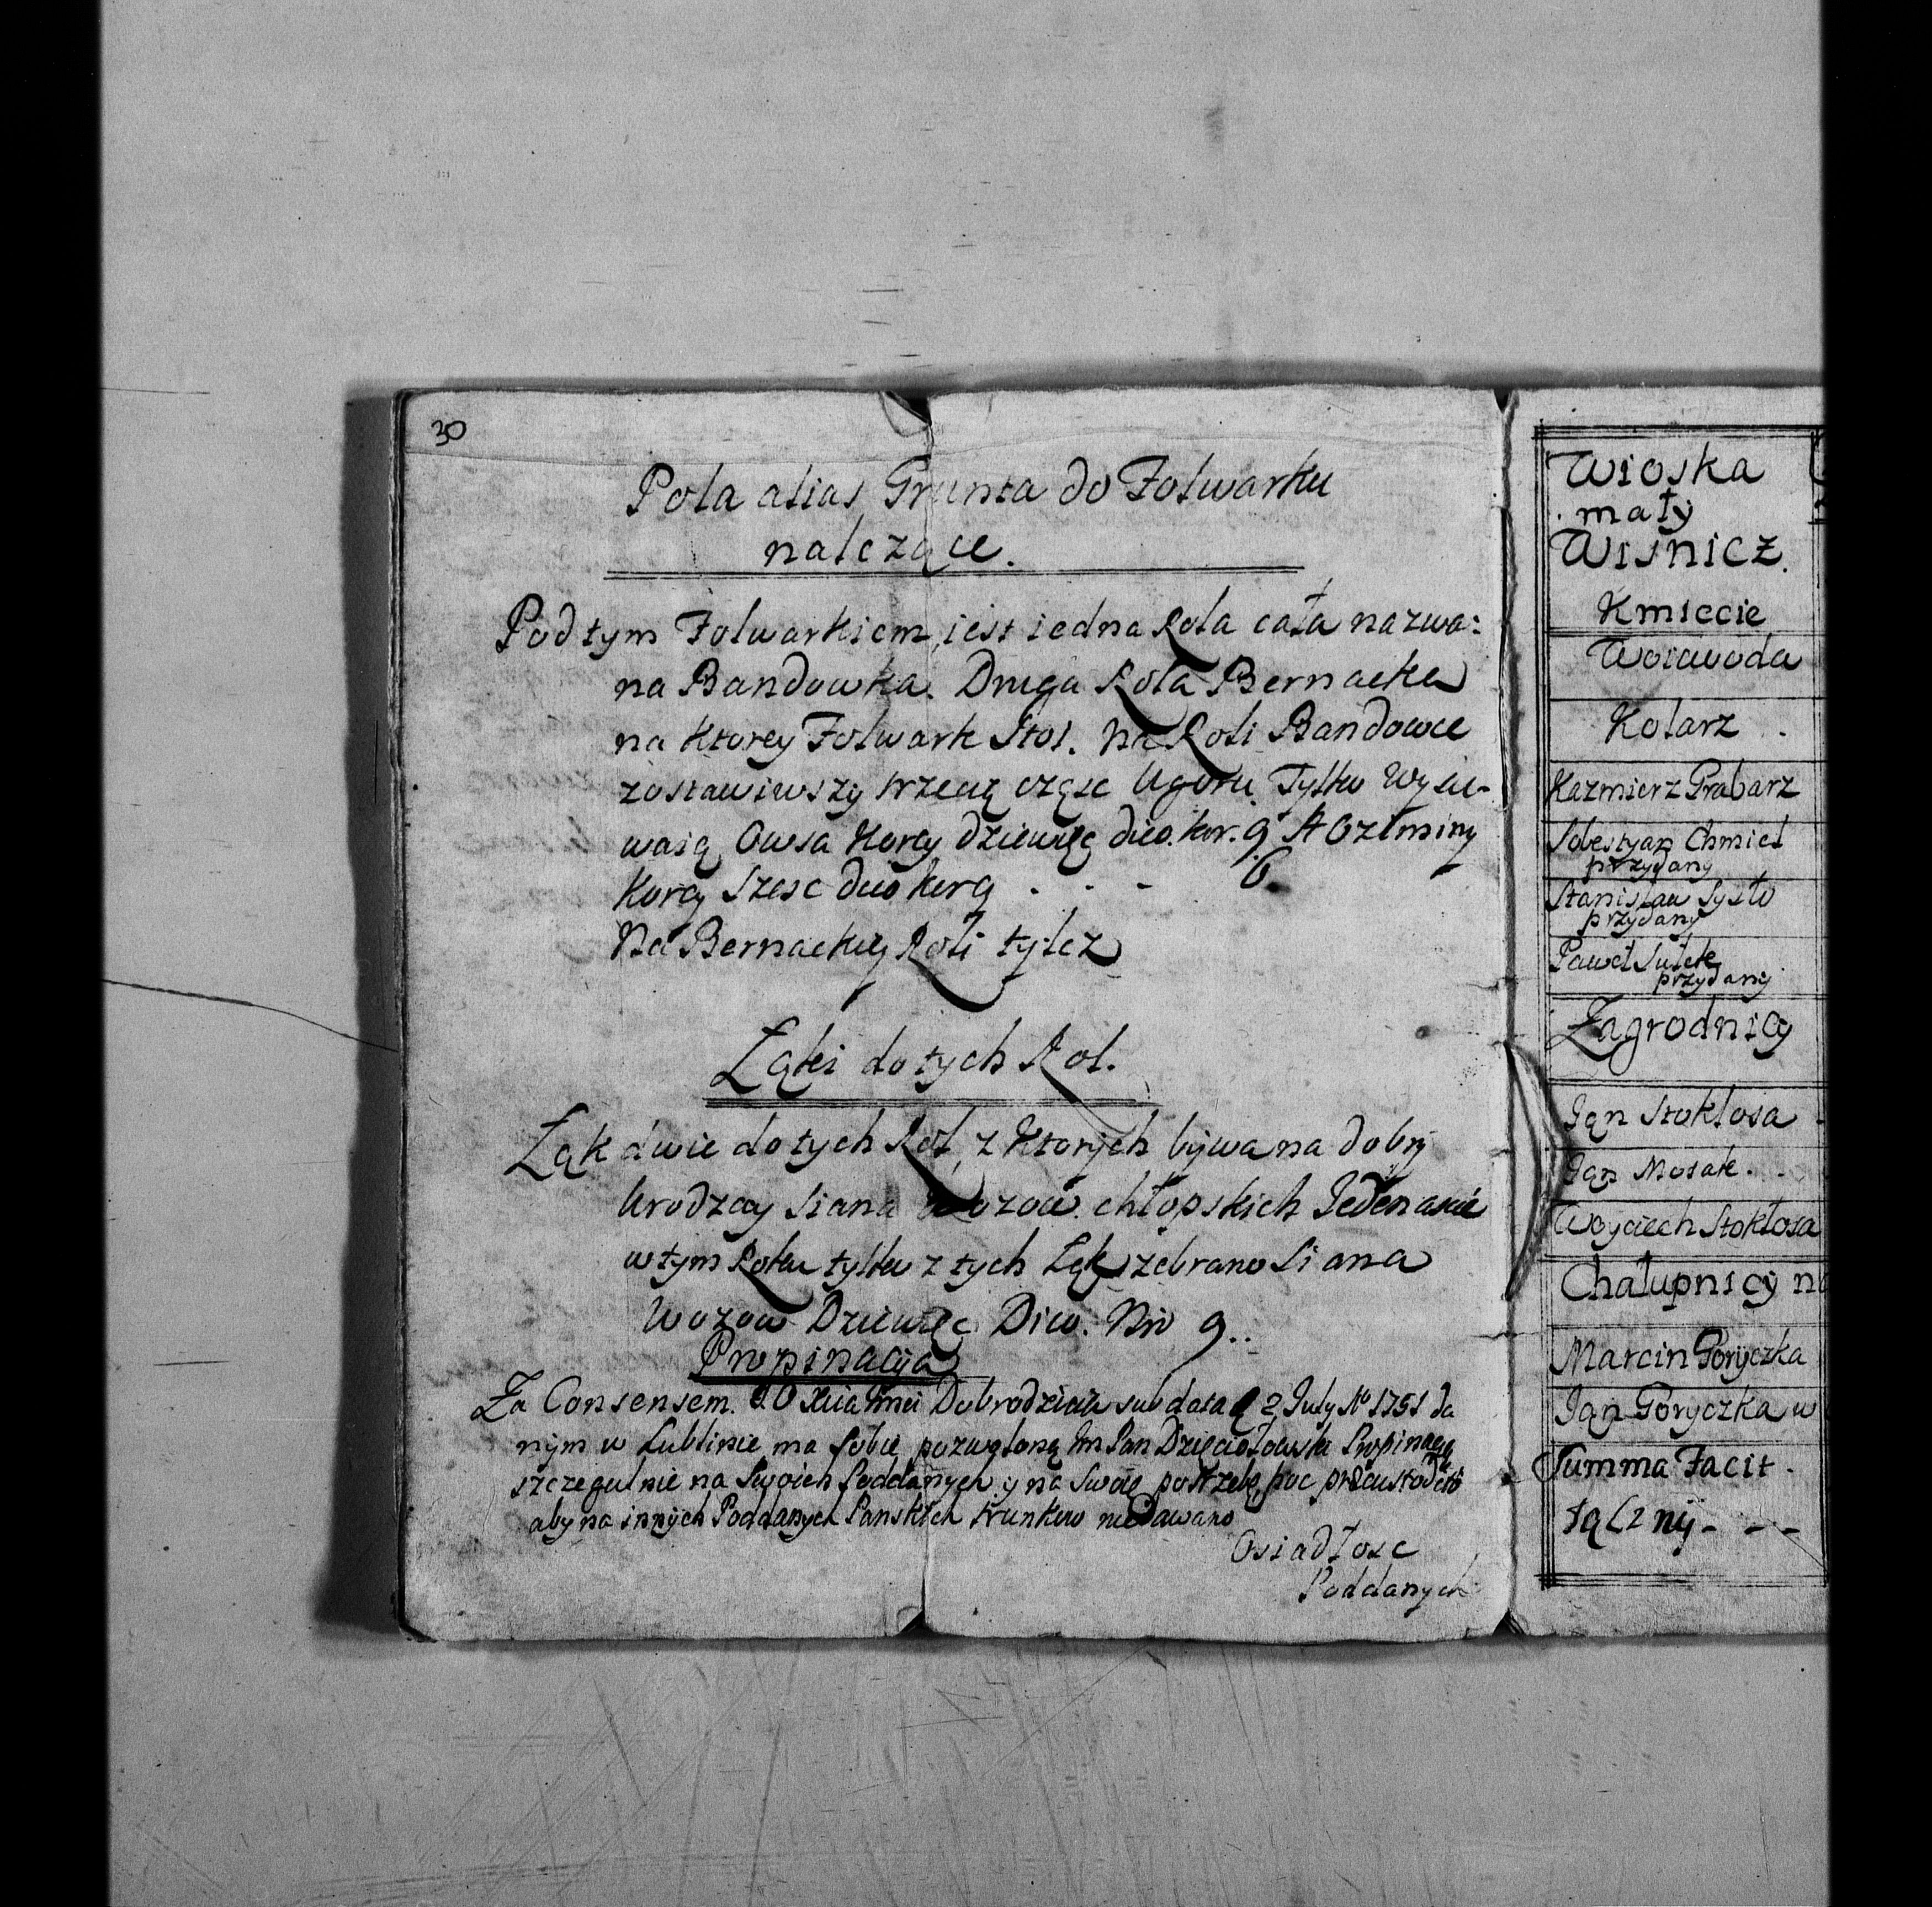 30
Pola alias Grunta do Folwarku
nalezące.
Pod tym Folwarkiem, iest iedna Rola cała nazwa:
na Bandowka. Druga Rola Bernacka
na Ktorey Folwark Stoi. Na Roli Bandowce
zostawiwszy trzecią częsc Ugoru Tylko Wysie-
waią Owsa Korcy dziewięc dico. kor. 9 A Oziminy
Korcy Szesc dico korcy . . - 6.
Na Bernackiey Roli tylez
Łąki do tych Rol.
Łąk dwie do tych Rol, z Ktorych bywa na dobry
Urodzay Siana Wozow chłopskich Jedenascie
w tym Roku tylko z tych Łąk zebrano Siana
Wozow Dziewięc Dico. Nro 9..
Propinacyia
Za Consensem J.O. Xcia Jmci Dobrodzieia sub data 2 July Aº 1751 da
nym w Lublinie ma sobie pozwoloną Jm Pan Dzięciołowski Propinacyą
szczegulnie na Swoich Poddanych y na Swoię potrzebę, hoc praecustodito
aby na innych Poddanych Panskich trunkow niedawano
Osiadłosc
Poddanych
Wioska
mały
Wisnicz.
Kmiecie
Woiewoda
Kolarz .
Kazmierz Grabarz
Sobestyan Chmiel
przydany
Stanisław Sysło
przydany
Paweł Sułek
przydany
Zagrodnicy
Jan Stokłosa
Jan Mosak . .
Woyciech Stokłosa
Chałupnicy na
Marcin Goryczka
Jan Goryczka w
Summa Facit .
Łączny - - -